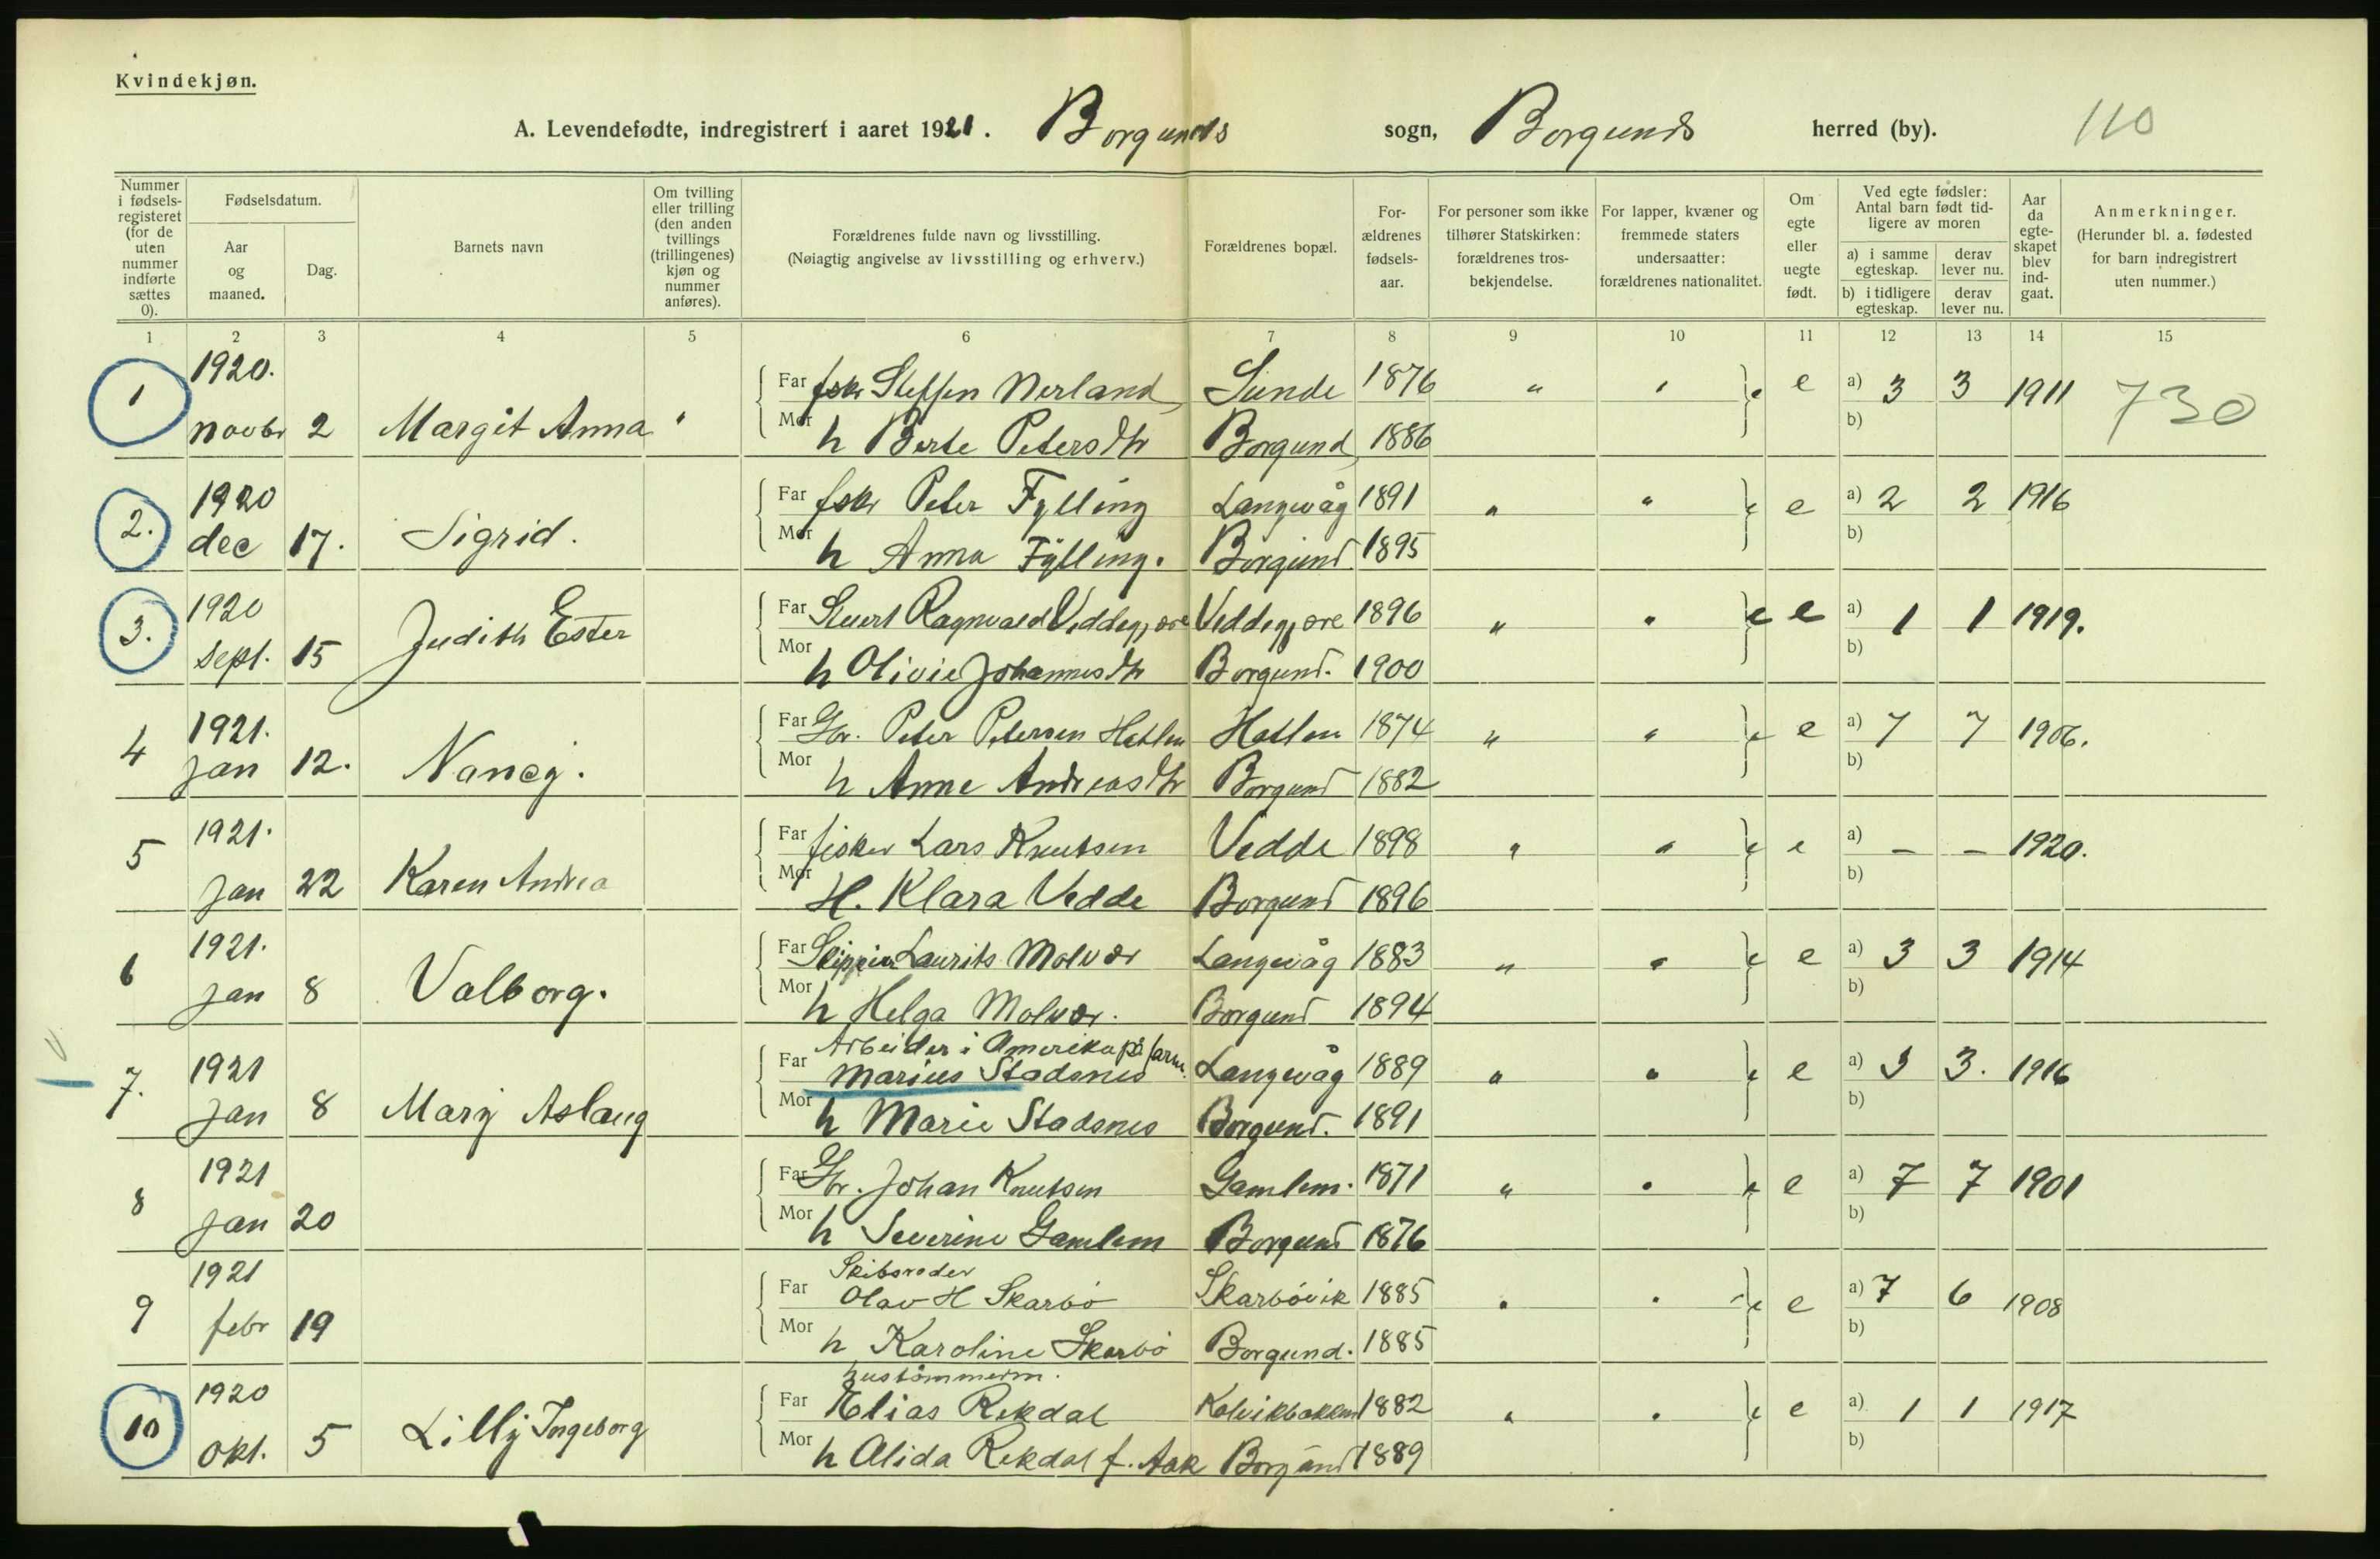 Kvindekjøn.
A. Levendefødte, indregistrert i aaret 1921. Borgunds sogn, Borgunds herred (by). 110
Nummer i fødselsregisteret (for de uten nummer indførte sættes 0).
Fødselsdatum.
Aar og maaned.
Dag.
Barnets navn
Om tvilling eller trilling (den anden tvillings (trillingenes) kjøn og nummer anføres).
Forældrenes fulde navn og livsstilling.
(Nøiagtig angivelse av livsstilling og erhverv.)
Forældrenes bopæl.
Forældrenes fødselsaar.
For personer som ikke tilhører Statskirken: forældrenes trosbekjendelse.
For lapper, kvæner og fremmede staters undersaatter: forældrenes nationalitet.
Om egte eller uegte født.
Ved egte fødsler: Antal barn født tidligere av moren
a) i samme egteskap.
derav lever nu.
b) i tidligere egteskap.
derav lever nu.
Aar da egteskapet blev indgaat.
Anmerkninger.
(Herunder bl. a. fødested for barn indregistrert uten nummer.)
1 2 3 4 5 6 7 8 9 10 11 12 13 14 15
1920.
Far fskr Steffen Nerland Sunde 1876 " " e a) 3 3 1911 730
1 novbr 2 Margit Anna "
Mor h Berte Petersdtr Borgund 1886 b)
1920
Far fskr Peter Fylling Langevåg 1891 " " e a) 2 2 1916
2. dec 17. Sigrid.
Mor h Anna Fylling. Borgund 1895 b)
1920
Far Sivert Ragnvald Veddegjære Veddegjære 1896 " " e a) 1 1 1919.
3. sept. 15 Judith Ester
Mor h Olivie Johannesdtr Borgund. 1900 b)
1921.
Far Gbr. Peter Petersen Hatlen Hatlen 1874 " " e a) 7 7 1906.
4 jan 12. Nancy.
Mor h Anne Andreasdtr Borgund 1882 b)
1921.
Far fisker Lars Knutsen Vedde 1898 " " e a) – – 1920.
5 jan 22 Karen Andrea
Mor H. Klara Vedde Borgund 1896 b)
1921.
Far Skipper Laurits Molvær Langevåg 1883 " " e a) 3 3 1914
6 jan 8 Valborg.
Mor h Helga Molvær. Borgund 1894 b)
Arbeider i Amerika på farm.
1921
Far Marius Stadsnes Langevåg 1889 " " e a) 3 3. 1916
7. jan 8 Mary Aslaug
Mor h Marie Stadsnes Borgund. 1891 b)
1921
Far Gbr. Johan Knutsen Gamlem. 1871 " " e a) 7 7 1901
8 jan 20
Mor h Severine Gamlem Borgund 1876 b)
Skibsreder
1921
Far Olav H Skarbö Skarbövik 1885 " " e a) 7 6 1908
9 febr 19
Mor h Karoline Skarbö Borgund. 1885 b)
hustömmerm.
1920
Far Elias Rekdal Kolvikbakken 1882 " " e a) 1 1 1917
10 okt. 5 Lilly Ingeborg
Mor h Alida Rekdal f. Aak Borgund 1889 b)